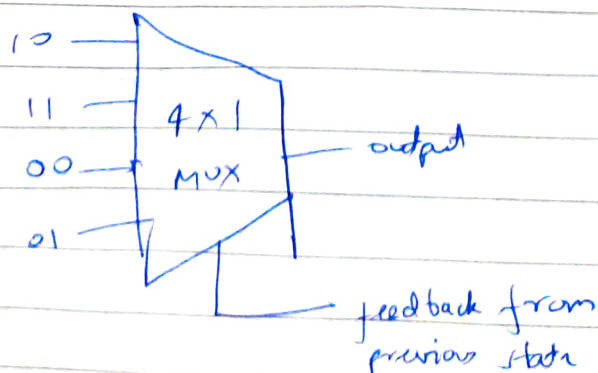 10
11
00
01
4x1
MUX
output
feedback from
previous state